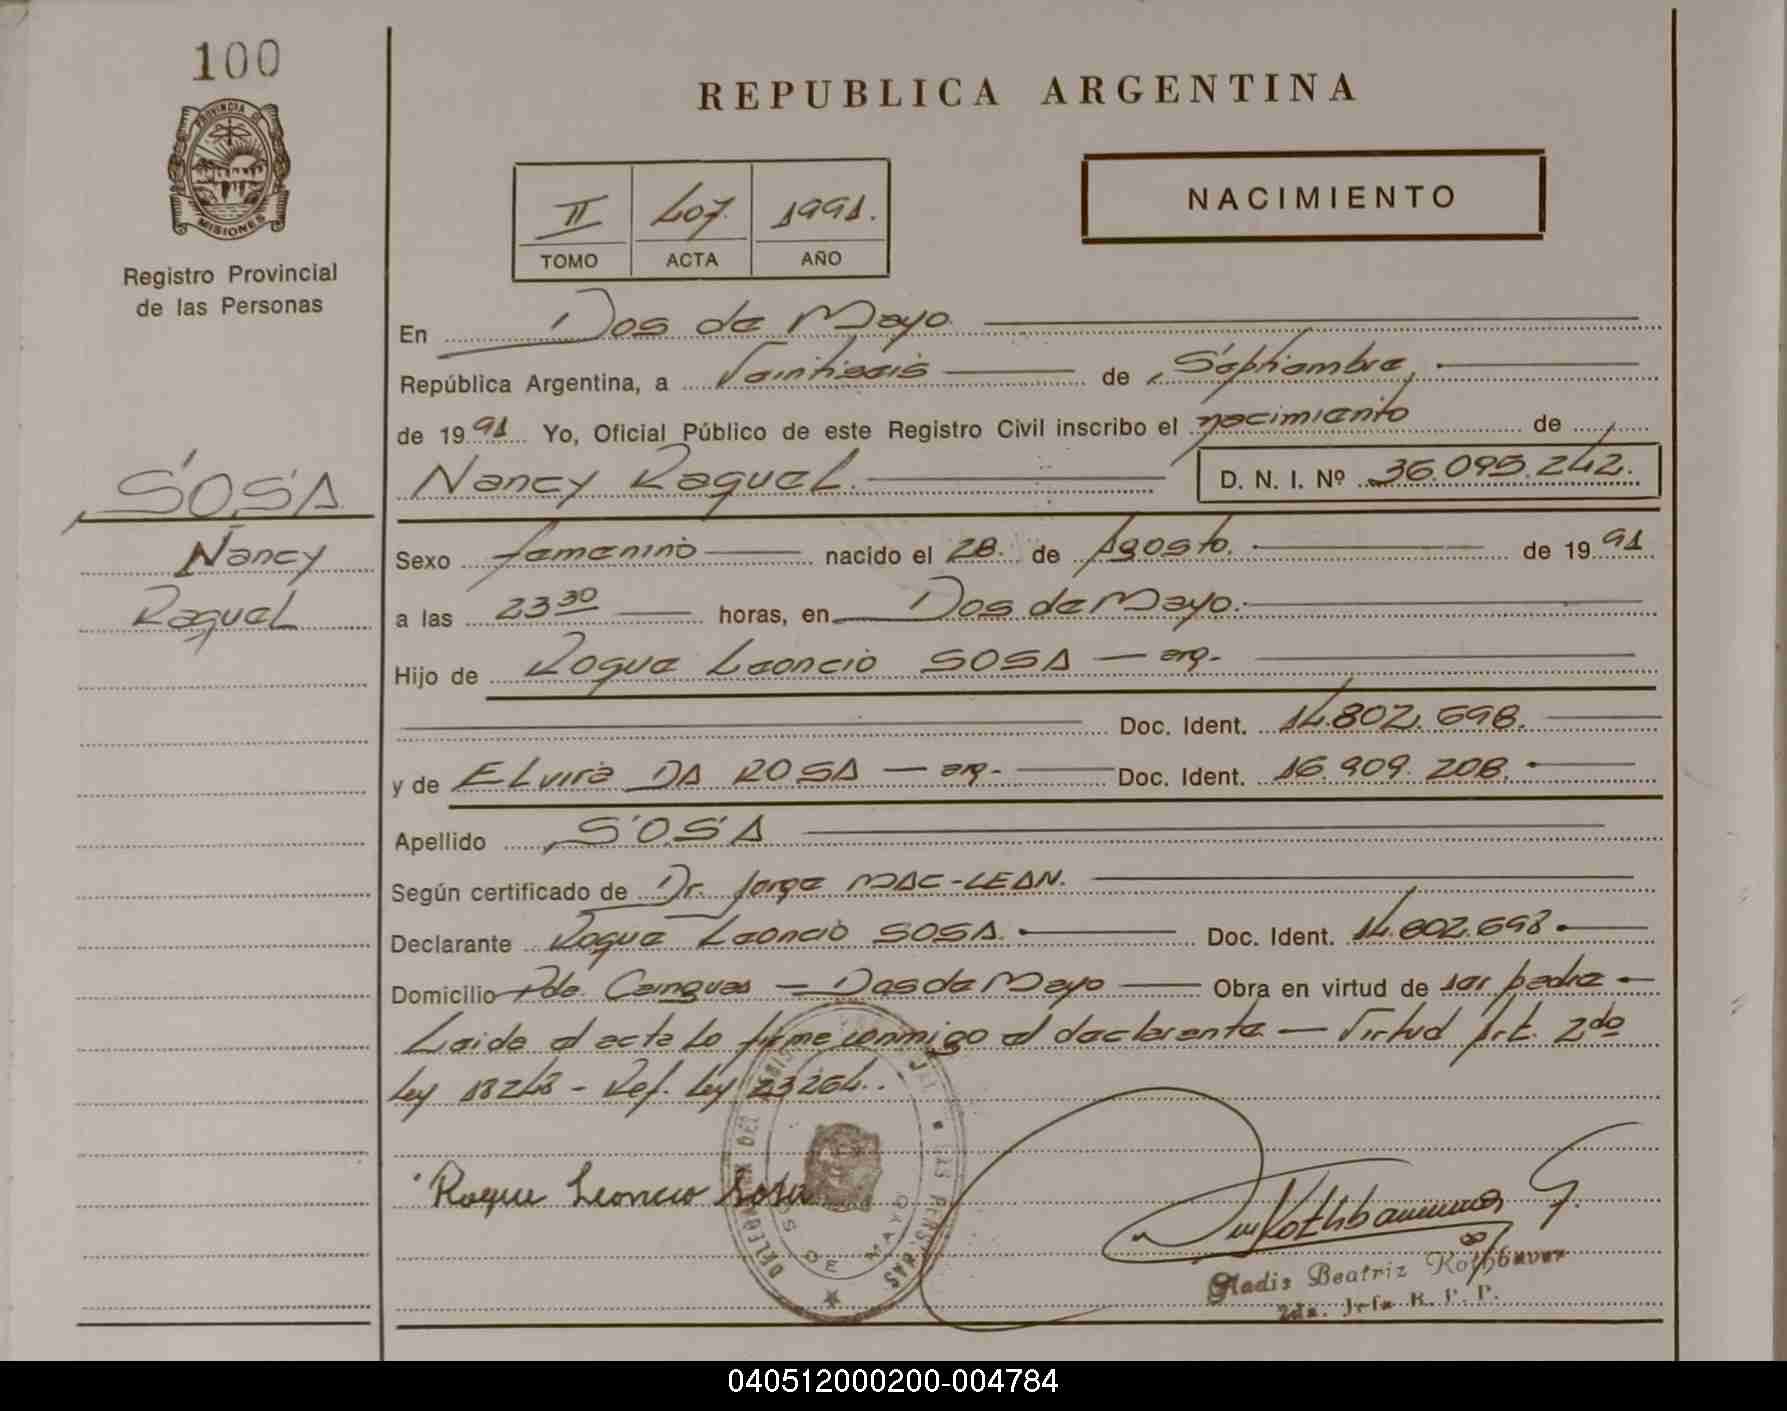 100
PROVINCIA DE
MISIONES
Registro Provincial
de las Personas
SOSA
Nancy
Raquel
REPUBLICA ARGENTINA
II 407. 1991.
TOMO ACTA AÑO
NACIMIENTO
En Dos de Mayo
República Argentina, a Veintiseis de Septiembre
de 1991 Yo, Oficial Público de este Registro Civil inscribo el nacimiento de
Nancy Raquel. D. N. I. Nº 36.095.242.
Sexo femenino nacido el 28. de Agosto. de 1991
a las 23 30 horas, en Dos de Mayo.
Hijo de Roque Leoncio SOSA - arg.
Doc. Ident. 14.802.698.
y de Elvira DA ROSA - arg. Doc. Ident. 16.909.208.
Apellido SOSA
Según certificado de Dr. Jorge MAC-LEAN.
Declarante Roque Leoncio SOSA. Doc. Ident. 14.802.698
Domicilio Pdo. Cainguas - Dos de Mayo Obra en virtud de ser padre
Leida el acta la firme conmigo el declarante - Virtud Art. 2do
Ley 18248 - Ref. Ley 23264.
Roque Leoncio Sosa
Gladis Beatriz Rothbauer
2da. Jefa R. P. P.
040512000200-004784